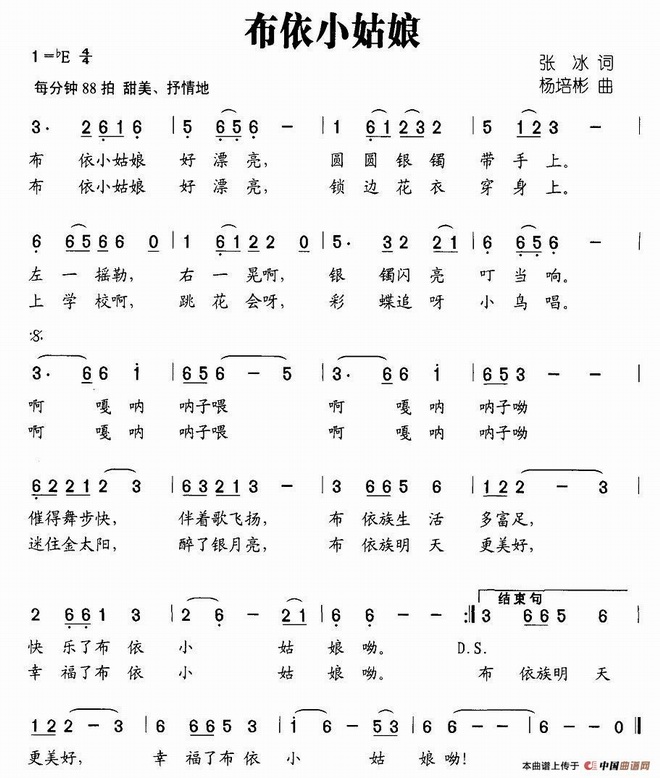 布依小姑娘
1=♭E 4/4
张 冰 词
每分钟88拍 甜美、抒情地
杨培彬 曲
3· 2 6 1 6 | 5 6 5 6 − | 1 6 1 2 3 | 5 1 2 3 − |
布 依小姑娘 好漂亮, 圆圆银镯 带手上。
布 依小姑娘 好漂亮, 锁边花衣 穿身上。
6 6 5 6 6 0 | 1 6 1 2 2 0 | 5· 3 2 2 2 1 | 6 6 5 6 − |
左一摇勒, 右一晃啊, 银 镯闪亮 叮当响。
上学校啊, 跳花会呀, 彩 蝶追呀 小鸟唱。
3· 6 6 1 | 6 5 6 − 5 | 3· 6 6 1 | 6 5 3 − − |
啊 嘎呐 呐子喂 啊 嘎呐 呐子呦
啊 嘎呐 呐子喂 啊 嘎呐 呐子呦
6 2 2 1 2 3 | 6 3 2 1 3 − | 3 6 6 5 6 | 3 2 2 − 3 |
催得舞步快, 伴着歌飞扬, 布依族生活 多富足,
迷住金太阳, 醉了银月亮, 布依族明天 更美好,
2 6 6 1 3 | 2 6 − 2 1 | 6 6 − − :‖ 3 6 6 5 6 |
结束句
快乐了布依 小 姑 娘呦。 D.S.
幸福了布依 小 姑 娘呦。 布依族明天
1 2 2 − 3 | 6 6 6 5 3 | 1 6 − 5 3 | 6 − − − | 6 − − 0 ‖
更美好, 幸福了布依 小 姑 娘呦!
本曲谱上传于 中国曲谱网